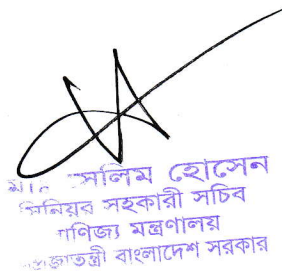 মোঃ সেলিম হোসেন
সিনিয়র সহকারী সচিব
বাণিজ্য মন্ত্রণালয়
গণপ্রজাতন্ত্রী বাংলাদেশ সরকার